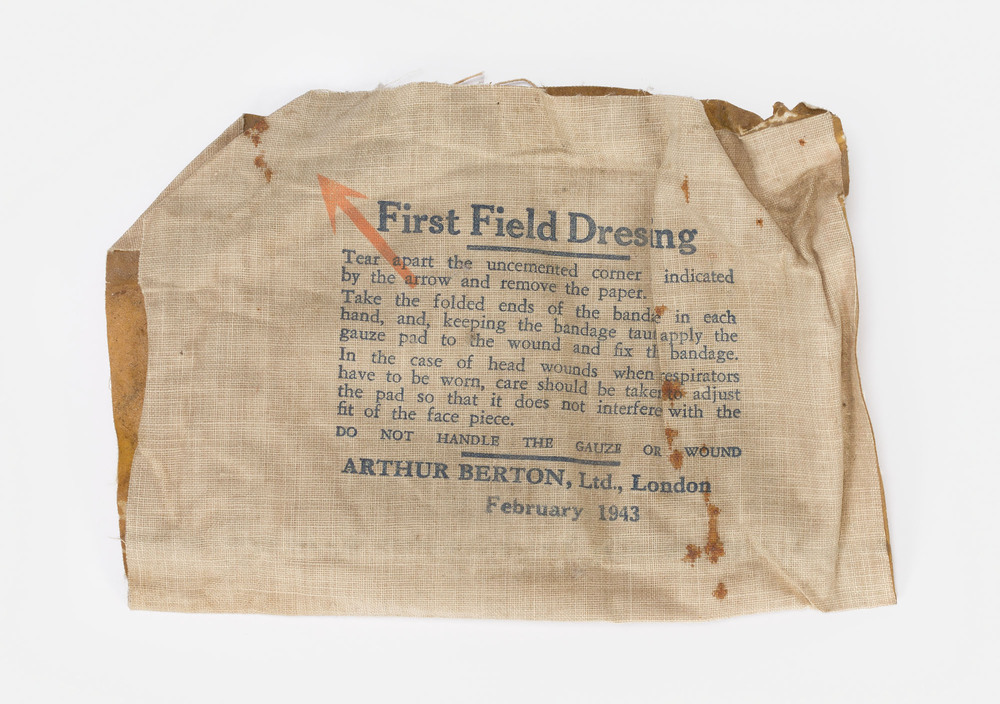 First Field Dressing
Tear apart the uncemented corner indicated
by the arrow and remove the paper.
Take the folded ends of the bandage in each
hand, and, keeping the bandage taut apply the
gauze pad to the wound and fix th bandage.
In the case of head wounds when respirators
have to be worn, care should be taken to adjust
the pad so that it does not interfere with the
fit of the face piece.
DO NOT HANDLE THE GAUZE OR WOUND
ARTHUR BERTON, Ltd., London
February 1943